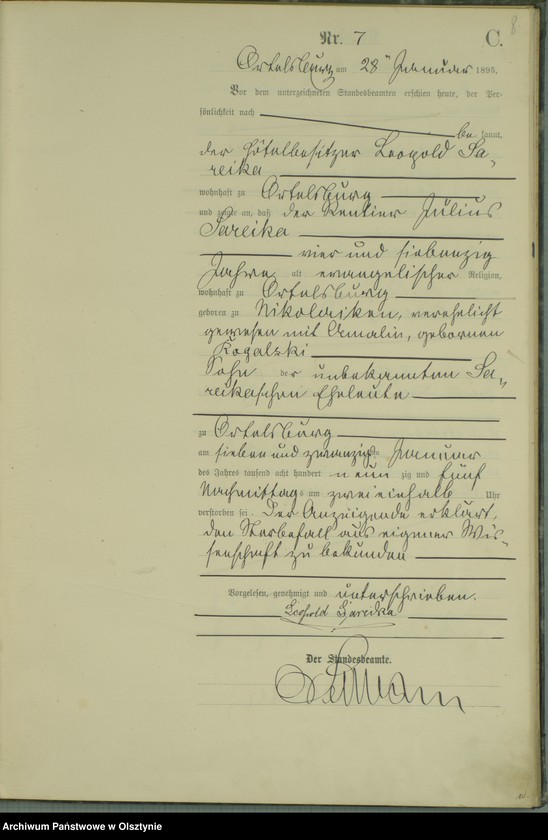 8
Nr. 7 C.
Ortelsburg am 28ten Januar 1895.
Vor dem unterzeichneten Standesbeamten erschien heute, der Per-
sönlichkeit nach
be kannt,
der Hôtelbesitzer Leopold Sa-
reika
wohnhaft zu Ortelsburg
und zeigte an, daß der Rentier Julius
Sareika
vier und siebenzig
Jahre alt evangelischer Religion,
wohnhaft zu Ortelsburg
geboren zu Nikolaiken, verehelicht
gewesen mit Amalin, geborenen
Rogalski
Sohn der unbekannten Sa-
reikaschen Eheleute
zu Ortelsburg
am sieben und zwanzigsten Januar
des Jahres tausend acht hundert neun zig und fünf
Nachmittags um zwei einhalb Uhr
verstorben sei. Der Anzeigende erklärt,
den Sterbefall aus eigener Wis-
senschaft zu bekunden
Vorgelesen, genehmigt und unterschrieben.
Leopold Sareika
Der Standesbeamte.
Archiwum Państwowe w Olsztynie